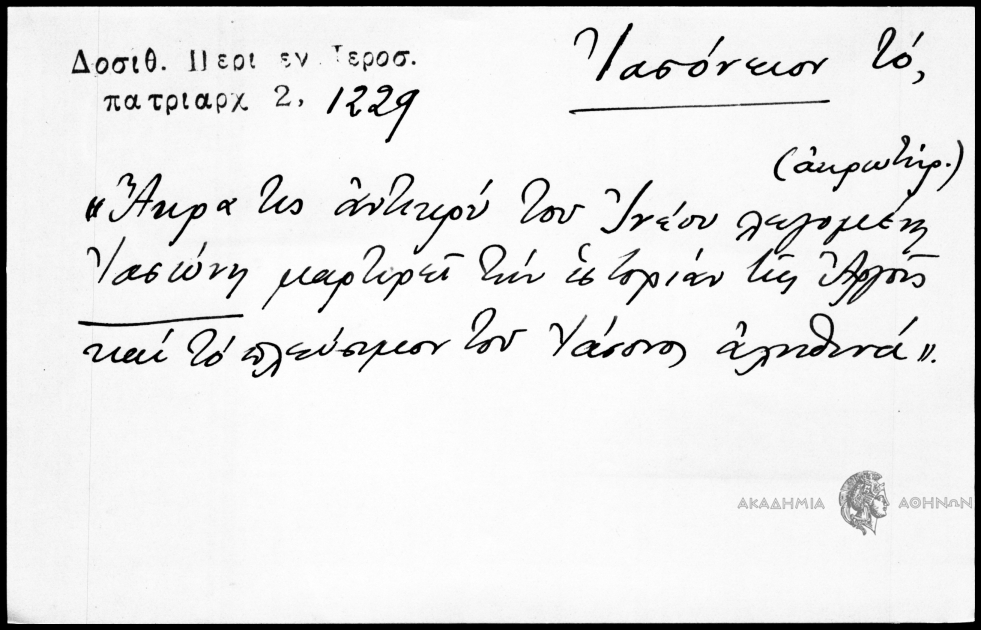 Δοσιθ. Περι εν Ιεροσ.
πατριαρχ 2, 1229
Ἰασόνειον τό,
(ἀκρωτήρ.)
«Ἄκρα τις ἀντικρύ του Ἰνέου λεγομένη
Ἰασώνη μαρτυρεῖ τήν ἱστορίαν τῆς Ἀργοῦς
καί τό πλεύσιμον του Ἰάσονος ἀληθινά».
ΑΚΑΔΗΜΙΑ ΑΘΗΝΩΝ